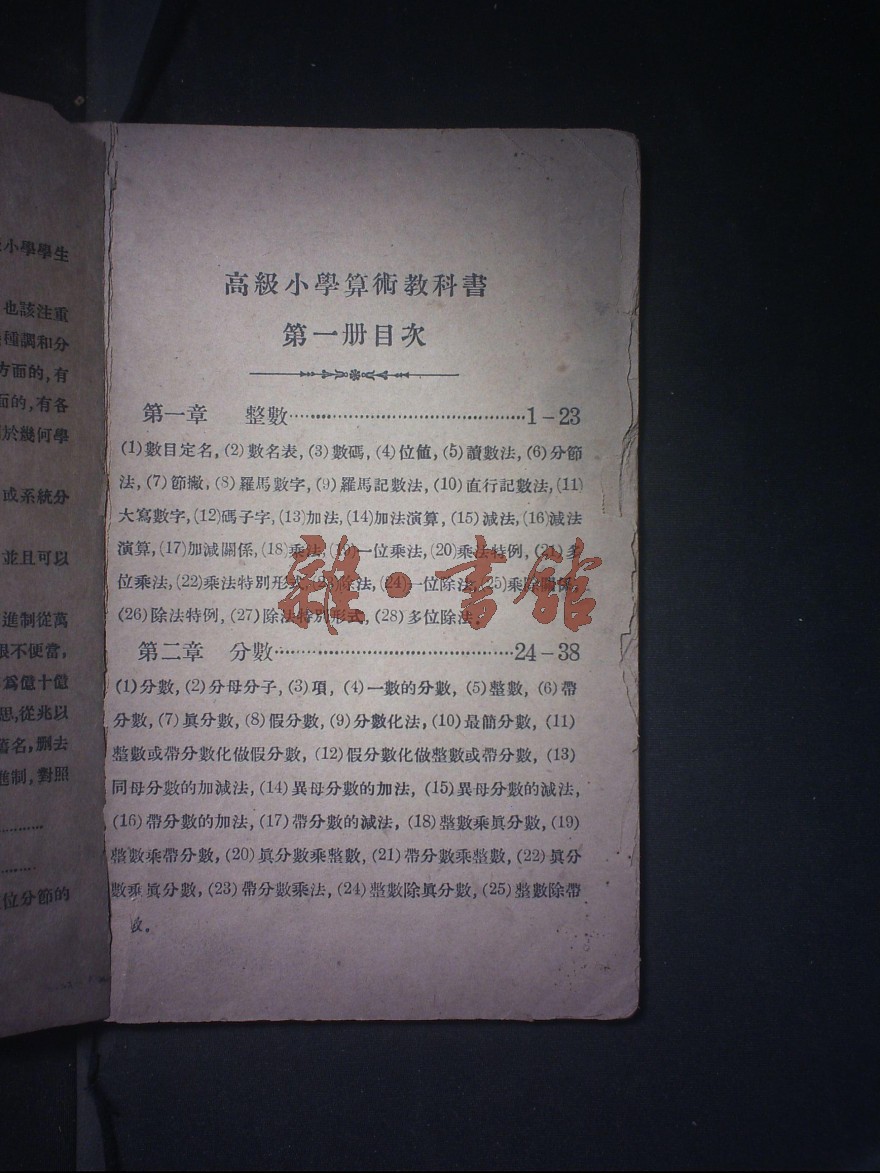 小學學生
也該注重
種調和分
方面的,有
面的,有各
於幾何學
或系統分
並且可以
進制從萬
很不便當,
爲億十億
思,從兆以
舊名,刪去
進制,對照
位分節的
高級小學算術教科書
第一册目次
第一章 整數……1-23
(1)數目定名,(2)數名表,(3)數碼,(4)位値,(5)讀數法,(6)分節
法,(7)節撇,(8)羅馬數字,(9)羅馬記數法,(10)直行記數法,(11)
大寫數字,(12)碼子字,(13)加法,(14)加法演算,(15)減法,(16)減法
演算,(17)加減關係,(18)乘法,(19)一位乘法,(20)乘法特例,(21)多
位乘法,(22)乘法特別形式,(23)除法,(24)一位除法,(25)乘除關係,
(26)除法特例,(27)除法特別形式,(28)多位除法.
雜·書館
第二章 分數……24-38
(1)分數,(2)分母分子,(3)項,(4)一數的分數,(5)整數,(6)帶
分數,(7)眞分數,(8)假分數,(9)分數化法,(10)最簡分數,(11)
整數或帶分數化做假分數,(12)假分數化做整數或帶分數,(13)
同母分數的加減法,(14)異母分數的加法,(15)異母分數的減法,
(16)帶分數的加法,(17)帶分數的減法,(18)整數乘眞分數,(19)
整數乘帶分數,(20)眞分數乘整數,(21)帶分數乘整數,(22)眞分
數乘眞分數,(23)帶分數乘法,(24)整數除眞分數,(25)整數除帶